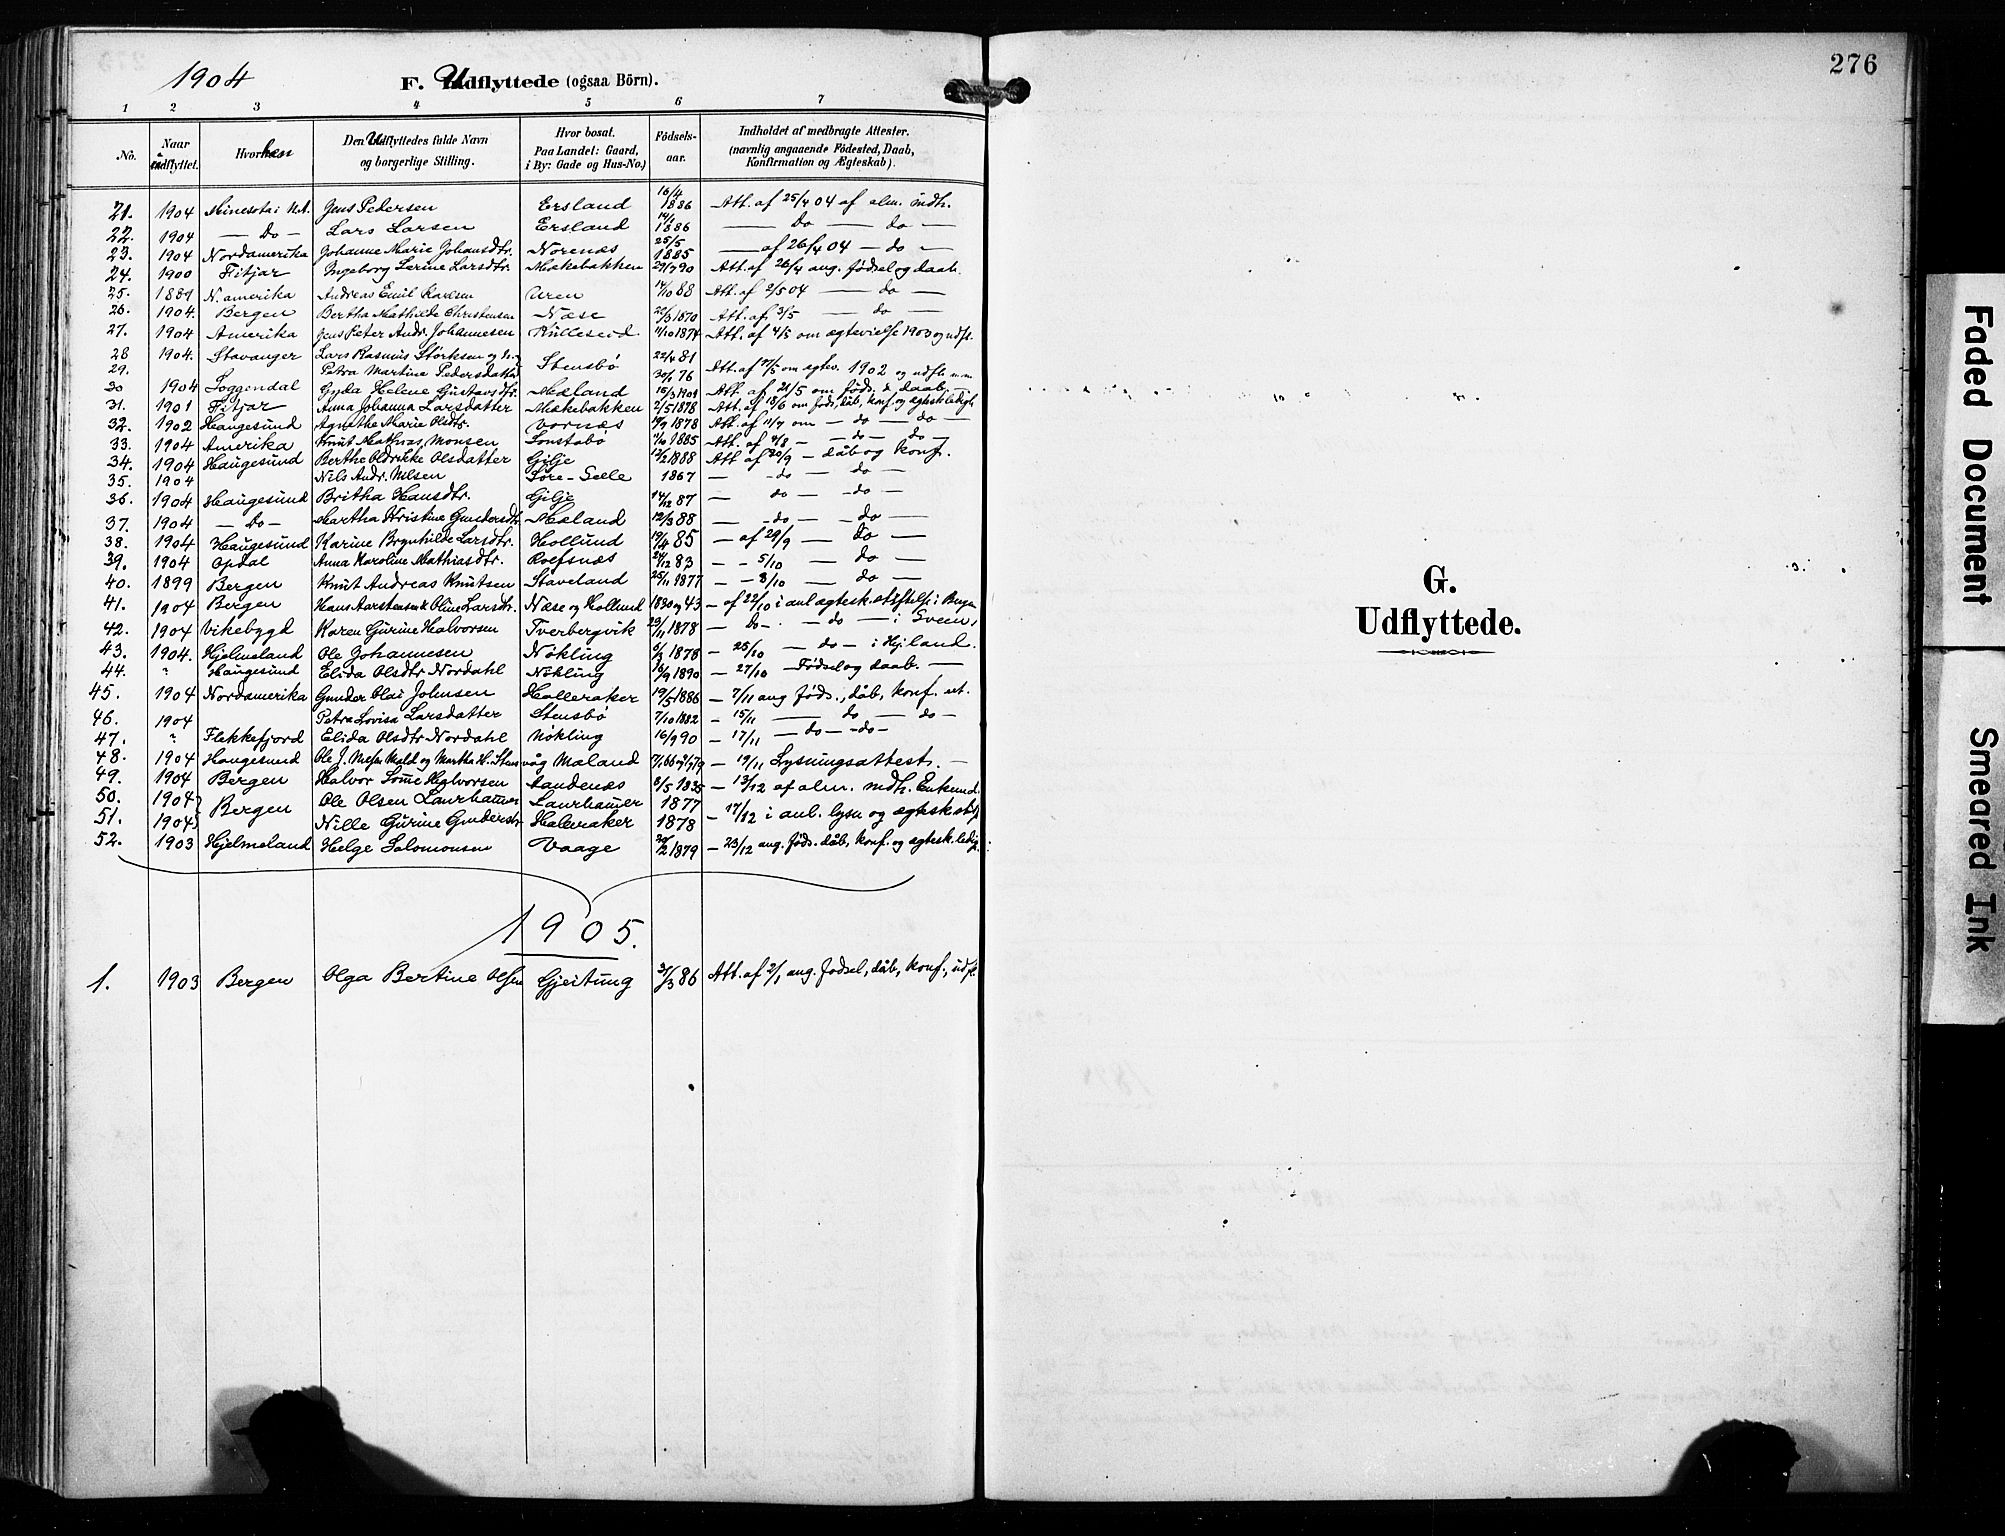 1904
F. Udflyttede (ogsaa Börn).
1 2 3 4 5 6 7
No. Naar udflyttet. Hvorhen Den Udflyttedes fulde Navn og borgerlige Stilling. Hvor bosat. Paa Landet: Gaard, i By: Gade og Hus-No.) Födselsaar. Indholdet af medbragte Attester. (navnlig angaaende Födested, Daab, Konfirmation og Ægteskab).
21. 1904 Minesota i N.A. Jens Pedersen Ersland 16/4 1886 Att. af 25/4 04 af alm. indh.
22. 1904 — Do — Lars Larsen Ersland 14/1 1886 — Do — do —
23. 1904 Nordamerika Johanne Marie Johansdtr. Norenæs 25/5 1885 — af 26/4 04 — do —
24. 1900 Fitjar Ingeborg Serine Larsdtr. Mækebakken 29/7 90 Att. af 26/4 ang. födsel og daab.
25. 1881 N. amerika Andreas Emil Karlsen Uren 14/10 88 Att. af 2/5 04 — do —
26. 1904. Bergen Bertha Mathilde Christensen Næse 1870 Att. af 3/5 — do —
27. 1904 Amerika Jens Peter Andr. Johannesen Kulleseid 11/10 1874 Att. af 4/5 om ægtevielse 1903 og udfl.
28 1904. Stavanger Lars Rasmus Störksen og h. Stensbö 22/4 81
29. Petra Martine Pedersdatter 30/1 76 Att. af 17/5 om ægtev. 1902 og udfl.
30 1904 Soggendal Gyda Helene Gustavsdtr. Mæland 15/3 1901 Att. af 21/5 om föds. & daab.
31. 1901 Fitjar Anna Johanna Larsdatter Mækebakken 2/5 1878 Att. af 18/6 om föds, dåb, konf. og ægtesk.ledigh
32. 1902 Haugesund Agnethe Marie Olsdtr. Vornæs 1878 Att. af 11/7 om — do — do —
33. 1904 Amerika Knut Mathias Monsen Sönstabö 1885 Att. af 9/8 — do — do —
34. 1904 Haugesund Berthe Oldrikke Olsdatter Gilje 12/2 1888 Att af 20/9 — dåb og konf.
35. 1904 Nils Andr. Nilsen Söre-Selle 1867 — do — do —
36. 1904 Haugesund Britha Hansdtr. Gilje 14/12 87 — do — do —
37. 1904 — Do — Martha Kristine Gundersdtr. Mæland 12/3 88 — do — do —
38. 1904 Haugesund Karine Brynhilde Larsdtr. Hollund 19/4 85 — af 29/9 — Do —
39. 1904 Opdal Anna Karoline Mathiasdtr. Rolfsnæs 24/12 83 — — 5/10 Do —
40. 1899 Bergen Knut Andreas Knutsen Staveland 25/11 1877 — — 8/10 — do —
41. 1904 Bergen Hans Aarstensen & Oline Larsdtr. Næse og Hollund 1830 og 43 — af 22/10 i anl ægtesk.stiftelse i Bergen
42. 1904 Vikebygd Karen Gurine Halvorsen Tverbergvik 29/11 1878 — Do — — do — i Sveen,
43. 1904. Hjelmeland Ole Johannesen Nökling 5/3 1878 — 25/10 — do — i Hj.land.
44. " Haugesund Elida Olsdtr Nordahl Nökling 16/9 1890 — 27/10 — Födsel og daab. —
45. 1904 Nordamerika Gunder Olai Johnsen Halleraker 19/5 1886 — 7/11 ang föds., dåb, konf. et.
46. 1904 Petra Lovisa Larsdatter Stensbö 7/10 1882 — 15/11 — do — do —
47. " Flekkefjord Elida Olsdtr Nordahl Nökling 16/9 90 — 17/11 — do — do —
48. 1904 Haugesund Ole J. Næse Mæld og Martha H. Stensvåg Mæland — 19/11 Lysningsattest. —
49. 1904 Bergen Halvor Sönne Halvorsen Aandenæs 8/5 1835 — 13/12 af alm. indh. Enkemd.
50. 1904 Bergen Ole Olsen Laurhammer Laurhammer 1877
51. 1904 Nille Gurine Gundersdtr Halleraker 1878 — 17/12 i anl. lysn og ægtesk.stift
52. 1903 Hjelmeland Helge Salomonsen Vaage 1879 — 23/12 ang. föds. dåb, konf. og ægtesk.ledigh.
1905.
1. 1903 Bergen Olga Bertine Olsen Gjeitung 31/3 86 Att. af 2/1 ang. födsel, dåb, konf., udfl.
276
G.
Udflyttede.
Faded Document
Smeared Ink